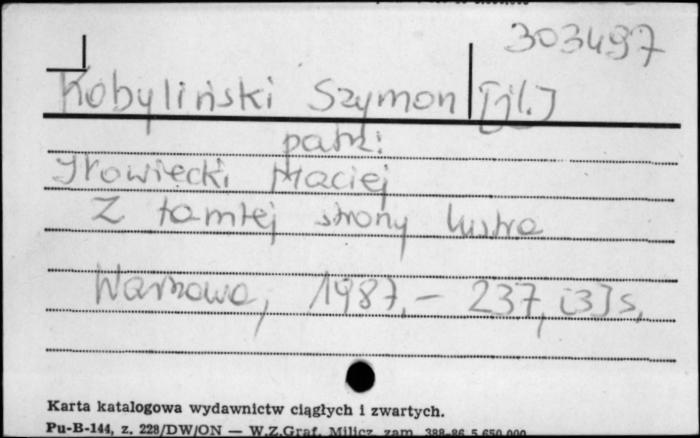 303497
Kobyliński Szymon [il.]
patrz:
Iłowiecki Maciej
Z tamtej strony lustra
Warszawa, 1987. – 237, [3] s.
Karta katalogowa wydawnictw ciągłych i zwartych.
Pu-B-144, z. 228/DW/ON — W.Z.Graf. Milicz zam. 388-86 5.650.000